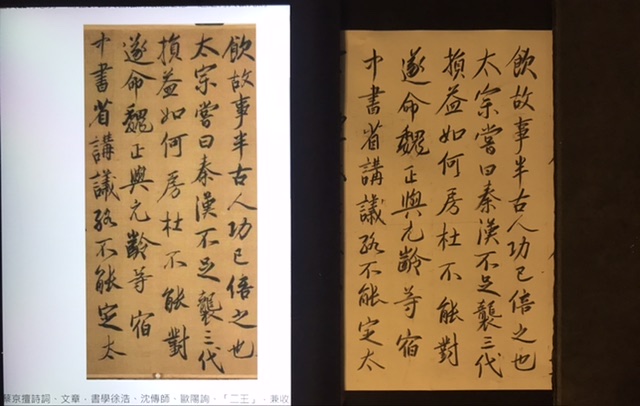 飲故事半古人功已倍之也
太宗嘗曰秦漢不足襲三代
損益如何房杜不能對
遂命魏正與元齡等宿
中書省講議終不能定太
蔡京擅詩詞、文章，書學徐浩、沈傳師、歐陽詢、「二王」，兼收
飲故事半古人功已倍之也
太宗嘗曰秦漢不足襲三代
損益如何房杜不能對
遂命魏正與元齡等宿
中書省講議終不能定太